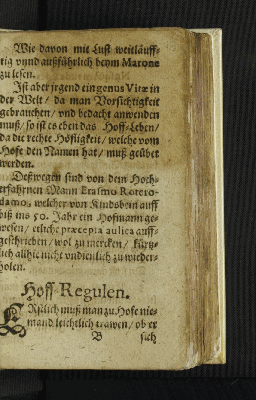 Wie davon mit Lust weitläuff-
tig vnnd außführlich beym Marone
zu lesen.
Ist aber jrgend ein genus Vitæ in
der Welt / da man Vorsichtigkeit
gebrauchen / vnd bedacht anwenden
muß / so ist es eben das Hoff-Leben /
da die rechte Höfligkeit / welche vom
Hofe den Namen hat / muß geübet
werden.
Deßwegen sind von dem Hoch-
erfahrnen Mann Erasmo Rotero-
damo, welcher von Kindsbein auff
biß ins 50. Jahr ein Hofmann ge-
wesen / etliche præcepta aulica auff-
geschrieben / wol zu mercken / kürtz-
lich allhie nicht vndienlich zu wieder-
holen.
Hoff Regulen.
ERstlich muß man zu Hofe nie-
mand leichtlich trawen / ob er
B sich